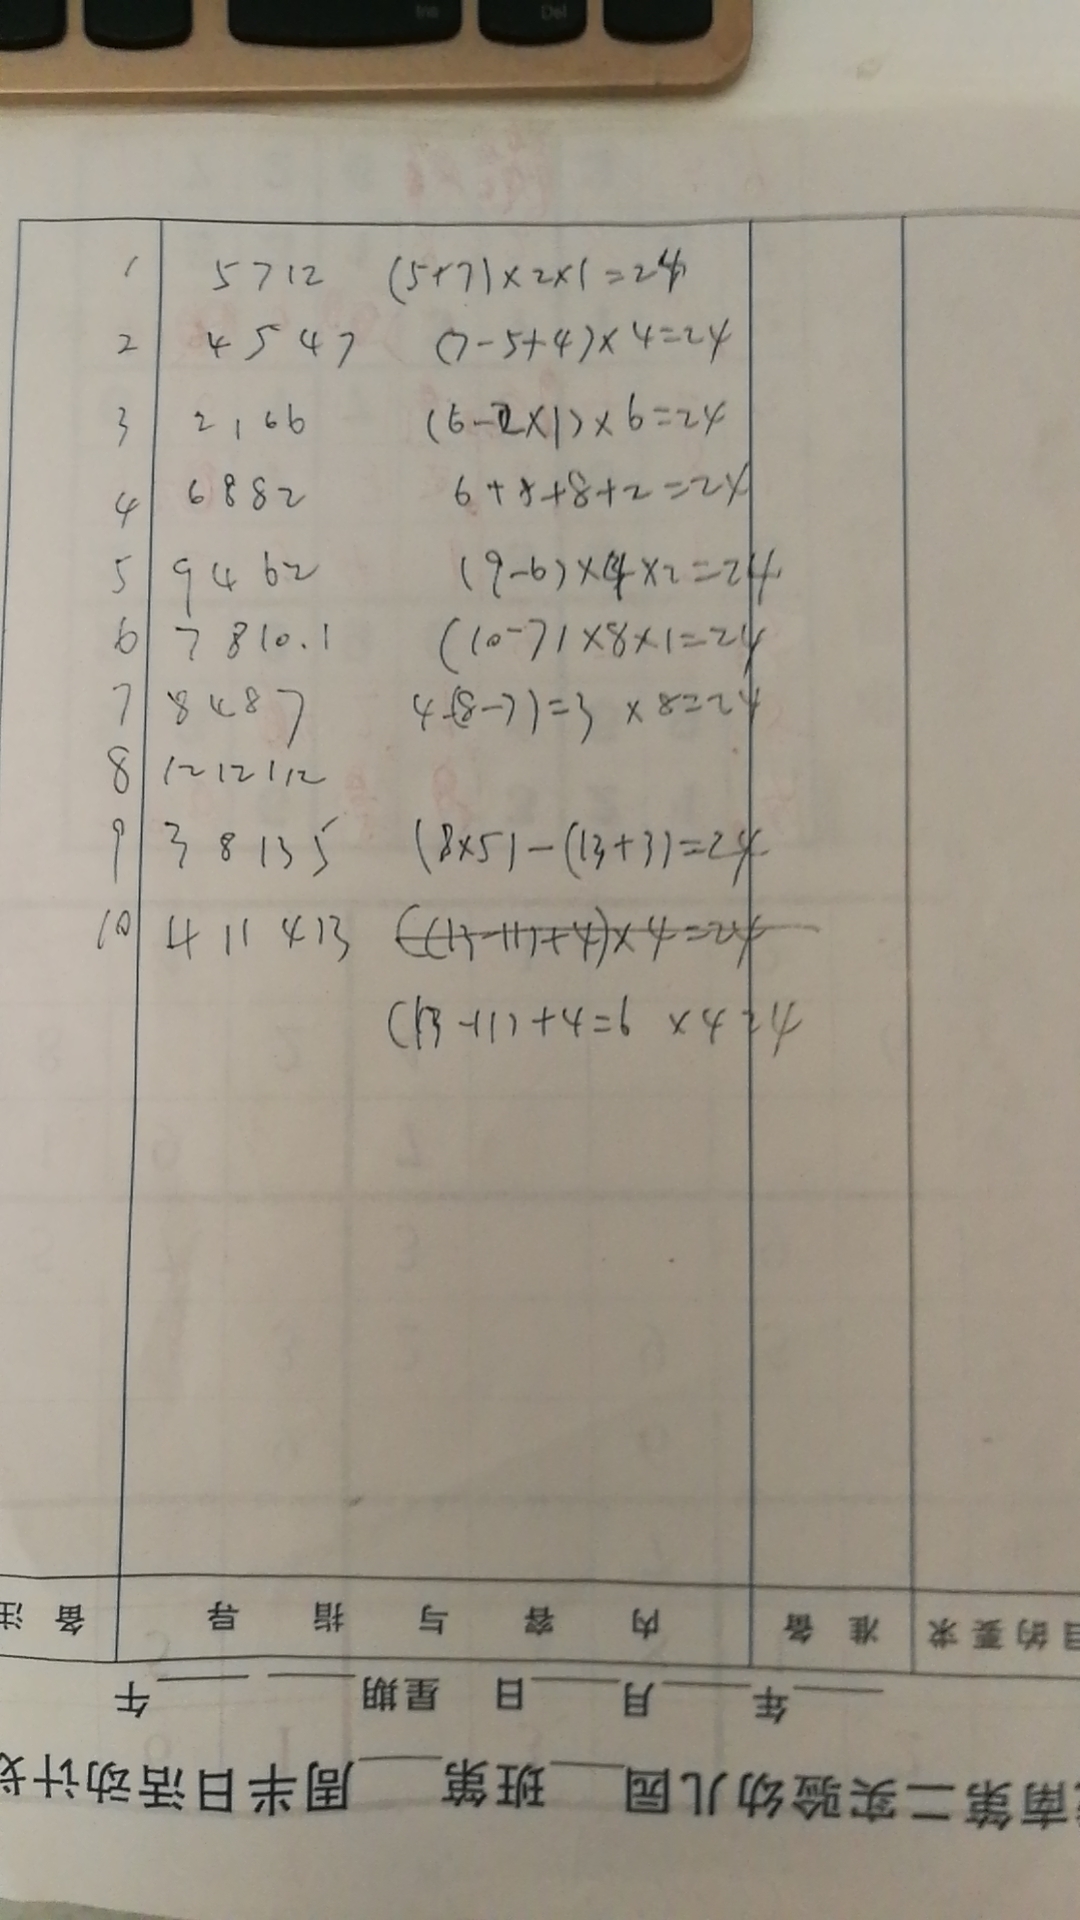 Ins Del
1 5 7 1 2 (5+7)×2×1=24
2 4 5 4 7 (7-5+4)×4=24
3 2 1 6 6 (6-2×1)×6=24
4 6 8 8 2 6+8+8+2=24
5 9 4 6 2 (9-6)×4×2=24
6 7 8 10.1 (10-7)×8×1=24
7 8 4 8 7 4-(8-7)=3 ×8=24
8 12 12 1 12
9 3 8 13 5 (8×5)-(13+3)=24
10 4 11 4 13 ((13-11)+4)×4=24
(13-11)+4=6 ×4=24
目的要求 准备 内容与指导 备注
年 月 日 星期 午
南第二实验幼儿园 班第 周半日活动计划